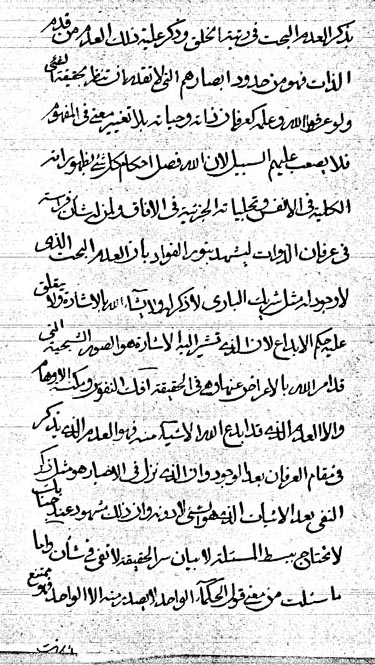 يذكر العدم البحت في رتبة الخلق وذكر علية ذلك العدم من قدم
الذات فهو من حدود ابصارهم التي لا تقدر ان تنظر بحقيقة الشيء
ولو عرفوا الله وعلمه كعرفان ذاته وحياته بلا تغيير معنى في المفهوم
فلا يصعب عليهم السبيل لان الله فصل احكام كل شيء بظهوراته
الكلية في الانفس وتجلياته الجزئية في الافاق وان لمن شأن
في عرفان الذوات ليشهد بنور الفواد بان العدم البحت الذي
لا وجود له مثل شريك الباري لا ذكر له ولا يشاء الله بالاشارة ولا يتعلق
عليه حكم الابداع لان الذي تشير اليه الاشارة هو الصور السجينية التي
قد امر الله بالاعراض عنها وهي في الحقيقة افك النفوس
والا العدم الذي قد ابدع الله لا شيء منه فهو العدم الذي يذكر
في مقام العرفان بعد الوجود وان الذي نزل في الاخبار هو
النفي بعد الاثبات الذي هو الشيء لا دونه وان ذلك مشهود عند
لا تحتاج ببسط المسئلة لا بيان سر الحقيقة لانفي في شأن واما
ما سئلت من معنى قول الحكماء الواحد لا يصدر منه الا الواحد فهو ممتنع